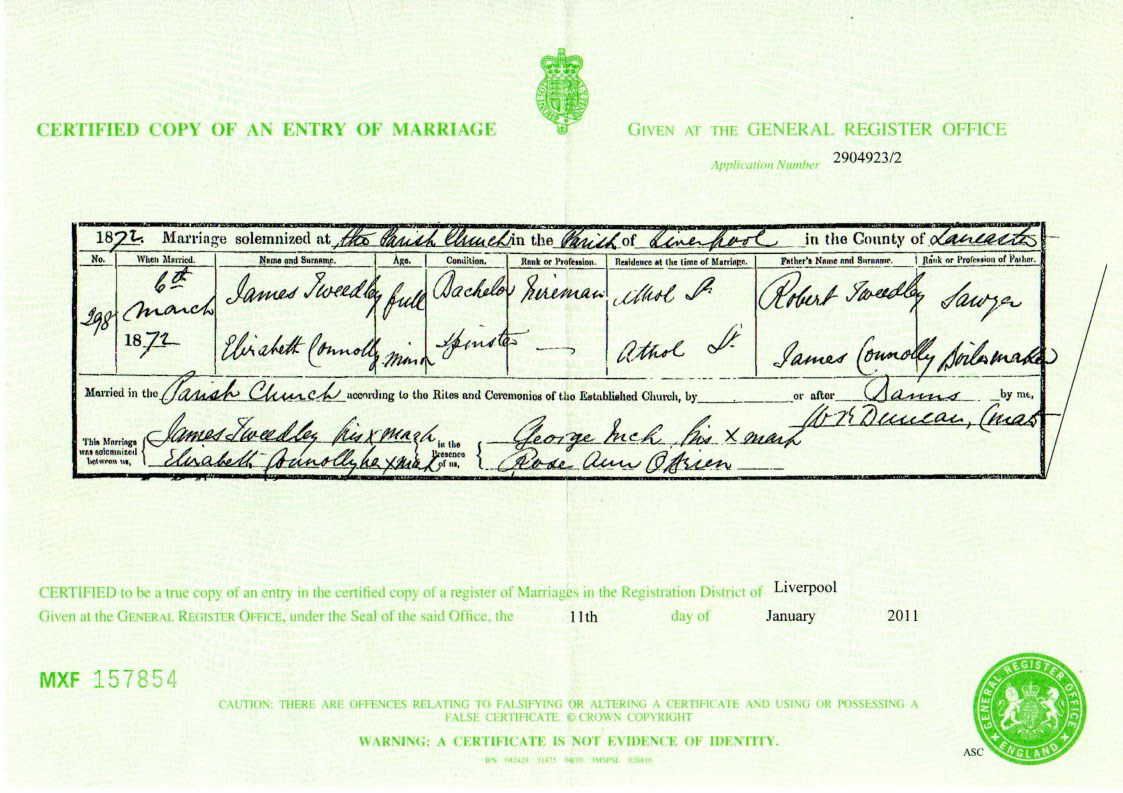 CERTIFIED COPY OF AN ENTRY OF MARRIAGE
GIVEN AT THE GENERAL REGISTER OFFICE
Application Number 2904923/2
1872. Marriage solemnized at the Parish Church in the Parish of Liverpool in the County of Lancaster
No. When Married. Name and Surname. Age. Condition. Rank or Profession. Residence at the time of Marriage. Father's Name and Surname. Rank or Profession of Father.
298 6th March 1872
James Tweedley full Bachelor Fireman Athol St. Robert Tweedley Sawyer
Elizabeth Connolly minor Spinster — Athol St. James Connolly Boilermaker
Married in the Parish Church according to the Rites and Ceremonies of the Established Church, by or after Banns by me,
W R Duncan, Curate
This Marriage was solemnized between us,
James Tweedley his x mark
Elizabeth Connolly her x mark
in the Presence of us,
George Inch his x mark
Rose Ann O'Brien
CERTIFIED to be a true copy of an entry in the certified copy of a register of Marriages in the Registration District of Liverpool
Given at the GENERAL REGISTER OFFICE, under the Seal of the said Office, the 11th day of January 2011
MXF 157854
CAUTION: THERE ARE OFFENCES RELATING TO FALSIFYING OR ALTERING A CERTIFICATE AND USING OR POSSESSING A
FALSE CERTIFICATE. © CROWN COPYRIGHT
WARNING: A CERTIFICATE IS NOT EVIDENCE OF IDENTITY.
GENERAL REGISTER OFFICE
ENGLAND
ASC